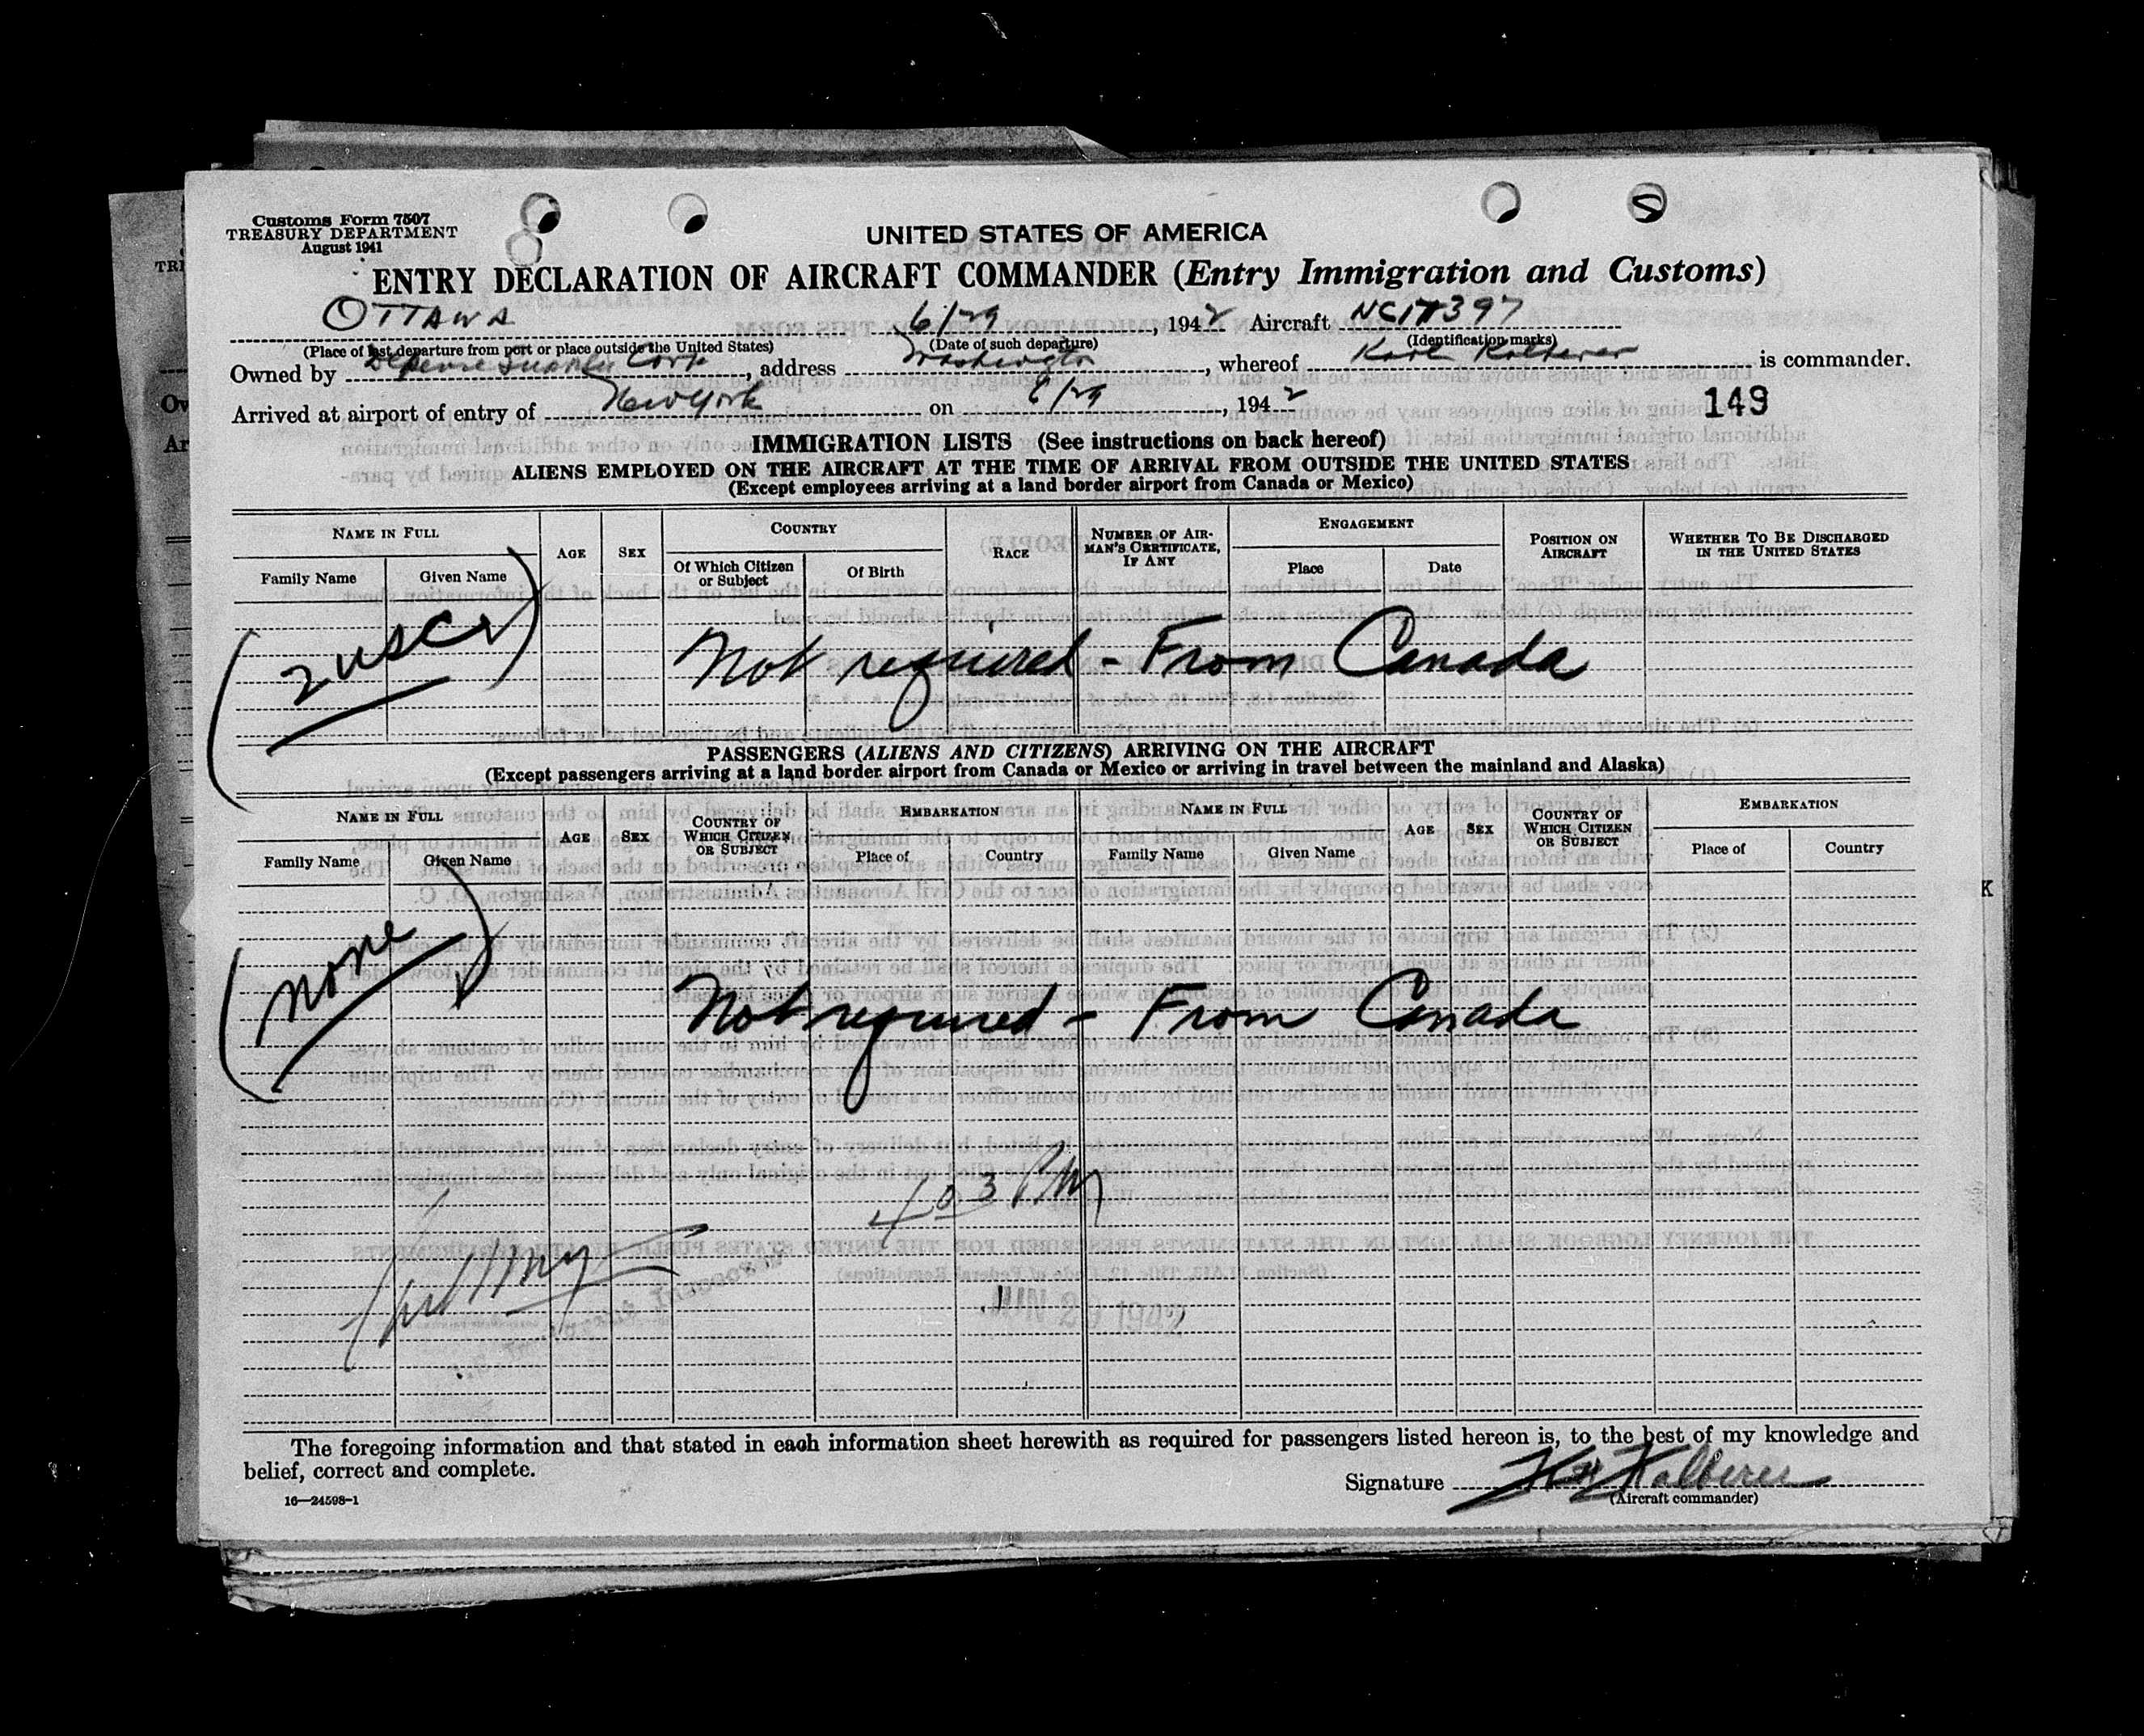 Customs Form 7507
TREASURY DEPARTMENT
August 1941
UNITED STATES OF AMERICA
ENTRY DECLARATION OF AIRCRAFT COMMANDER (Entry Immigration and Customs)
OTTAWA 6/29, 1942 Aircraft NC17397
(Place of last departure from port or place outside the United States) (Date of such departure) (Identification marks)
Owned by Defense Supplies Corp, address Washington, whereof Karl Kalberer is commander.
Arrived at airport of entry of New York on 6/29, 1942
149
IMMIGRATION LISTS (See instructions on back hereof)
ALIENS EMPLOYED ON THE AIRCRAFT AT THE TIME OF ARRIVAL FROM OUTSIDE THE UNITED STATES
(Except employees arriving at a land border airport from Canada or Mexico)
NAME IN FULL AGE SEX COUNTRY RACE NUMBER OF AIRMAN'S CERTIFICATE, IF ANY ENGAGEMENT POSITION ON AIRCRAFT WHETHER TO BE DISCHARGED IN THE UNITED STATES
Family Name Given Name Of Which Citizen or Subject Of Birth Place Date
(2 USCs)
Not required - From Canada
PASSENGERS (ALIENS AND CITIZENS) ARRIVING ON THE AIRCRAFT
(Except passengers arriving at a land border airport from Canada or Mexico or arriving in travel between the mainland and Alaska)
NAME IN FULL AGE SEX COUNTRY OF WHICH CITIZEN OR SUBJECT EMBARKATION NAME IN FULL AGE SEX COUNTRY OF WHICH CITIZEN OR SUBJECT EMBARKATION
Family Name Given Name Place of Country Family Name Given Name Place of Country
(none)
Not required - From Canada
403 PM
JUN 29 1942
The foregoing information and that stated in each information sheet herewith as required for passengers listed hereon is, to the best of my knowledge and
belief, correct and complete.
Signature Kalberer
(Aircraft commander)
16—24598-1